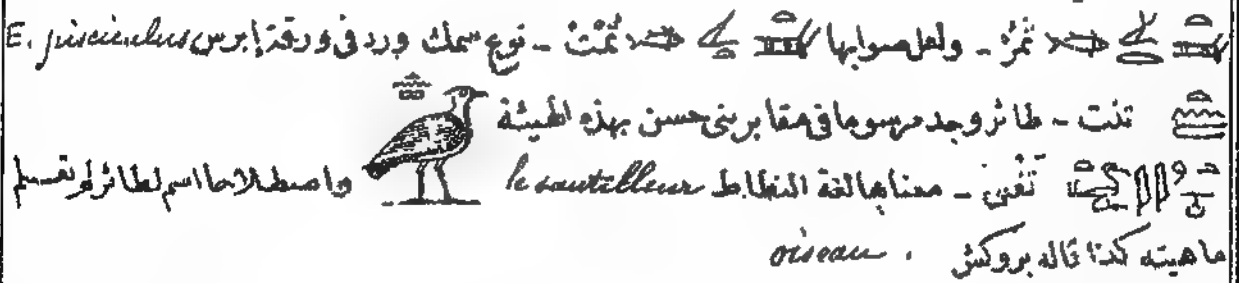 ثمز - ولعل صوابها ثمت - نوع سمك ورد فى ورقة إبرس E. pisciculus
تنت - طائر وجد مرسوما فى مقابر بنى حسن بهذه الهيئة
تفنن - معناها لغة النطاط le sautilleur واصطلاحا اسم لطائر لم تعلم
ماهيته كذا قاله بروكش . oiseau